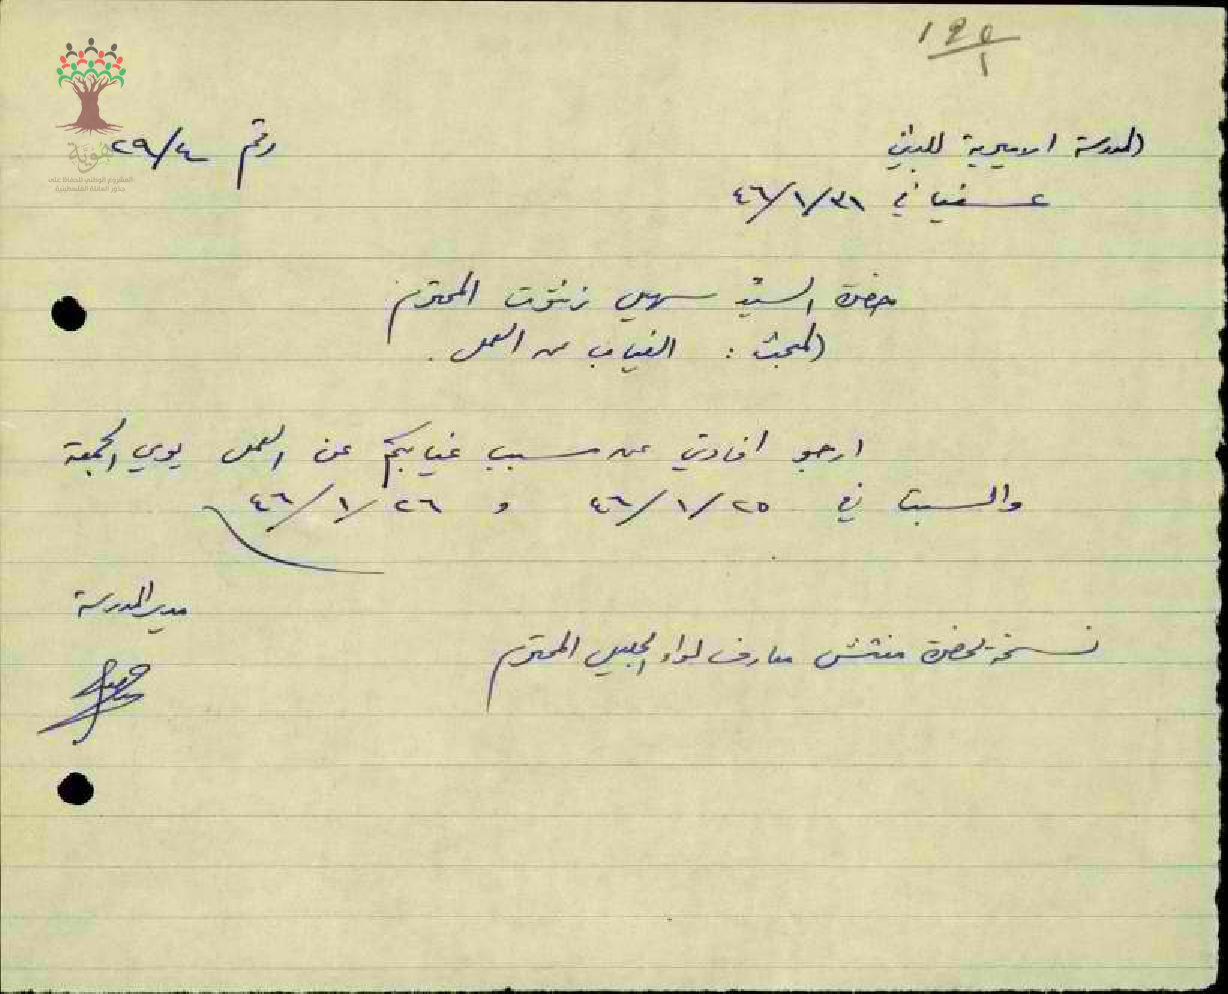 ١٩٥
١
المدرسة الاميرية للبنين
رقم ٢٩/٤
عسفيا في ٤٦/١/٣١
هوية
المشروع الوطني للحفاظ على
جذور العائلة الفلسطينية
حضرة السيد سهيل المحترم
المبحث : الغياب عن العمل .
ارجو افادتي عن سبب غيابكم عن العمل يومي الجمعة
والسبت في ٤٦/١/٢٥ و ٤٦/١/٢٦
مدير المدرسة
نسخة لحضرة مفتش معارف لواء الجليل المحترم